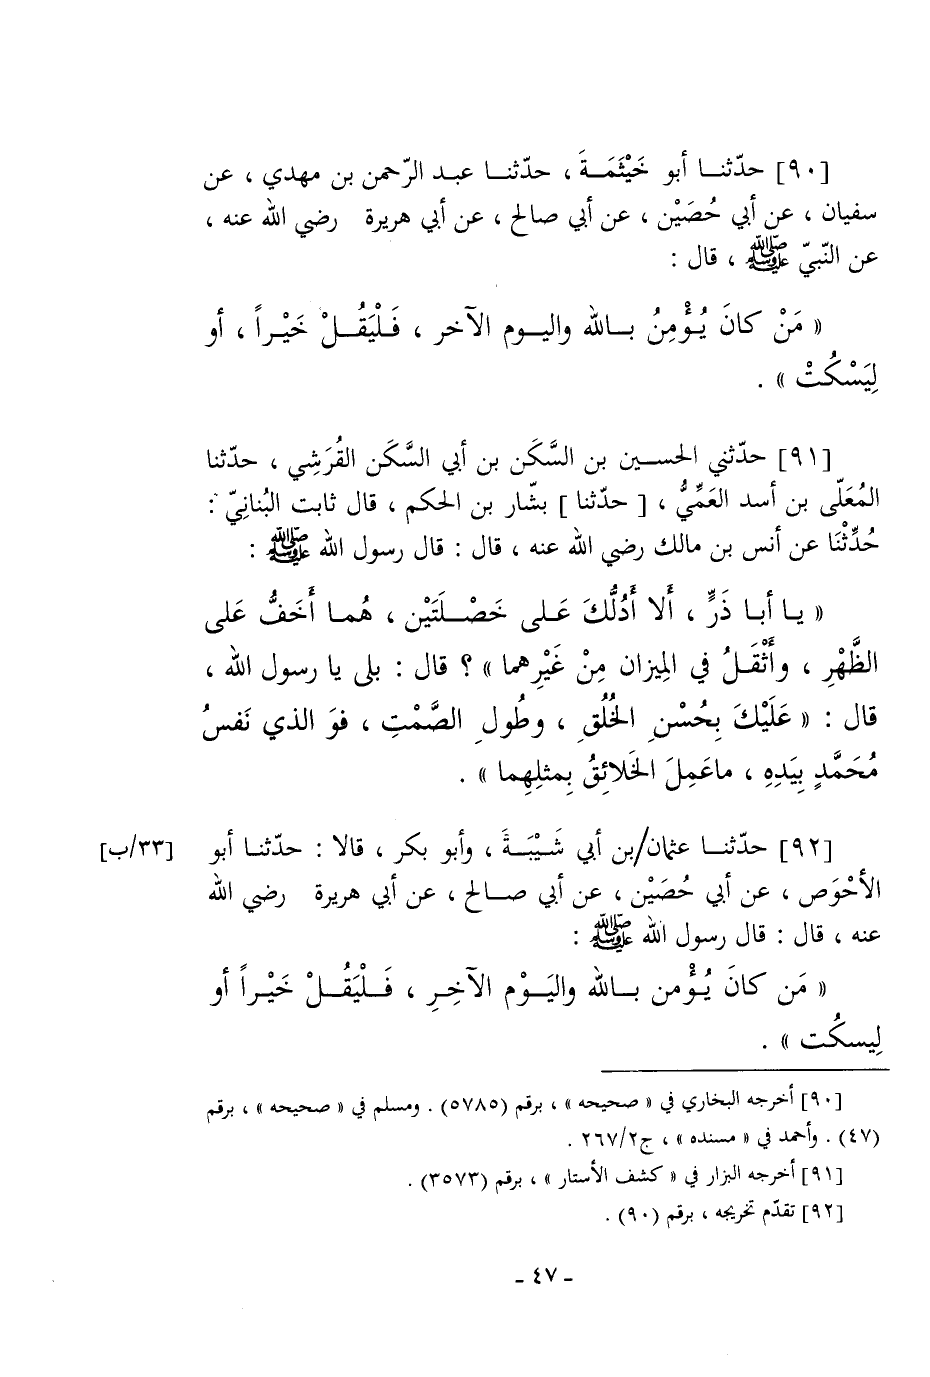 [٩٠] حدّثنــا أبو خَيْثَمَــةَ ، حدّثنــا عبــد الرّحمن بن مهدي ، عن
سفيان ، عن أبي حُصَيْن ، عن أبي صالح ، عن أبي هريرة رضي الله عنه ،
عن النّبيّ ﷺ ، قال :
« مَنْ كانَ يُــؤْمِنُ بــالله واليــوم الآخر ، فَــلْيَقُــلْ خَيْــراً ، أو
لِيَسْكُتْ » .
[٩١] حدّثني الحســين بن السَّكَن بن أبي السَّكَن القُرَشِي ، حدّثنا
المُعَلّى بن أسد العَمِّيُّ ، [ حدّثنا ] بشّار بن الحكم ، قال ثابت البُنانِيّ :
حُدِّثْنَا عن أنس بن مالك رضي الله عنه ، قال : قال رسول الله ﷺ :
« يــا أبــا ذَرٍّ ، أَلا أَدُلُّكَ عَــلى خَصْــلَتَيْن ، هُمــا أَخَفُّ عَلى
الظَّهْرِ ، وأَثْقَــلُ في المِيزان مِنْ غَيْرِهما » ؟ قال : بلى يا رسول الله ،
قال : « عَلَيْكَ بِحُسْنِ الخُلُقِ ، وطُولِ الصَّمْتِ ، فوَ الذي نَفسُ
مُحَمَّدٍ بِيَدِهِ ، ماعَمِلَ الخَلائِقُ بِمثلِهِما » .
[٩٢] حدّثنــا عثمان/بن أبي شَيْبَــةَ ، وأبو بكر ، قالا : حدّثنــا أبو [٣٣/ب]
الأحْوَص ، عن أبي حُصَيْن ، عن أبي صــالح ، عن أبي هريرة رضي الله
عنه ، قال : قال رسول الله ﷺ :
« مَن كانَ يُــؤْمن بــالله واليَــوْم الآخِــرِ ، فَــلْيَقُــلْ خَيْــراً أو
لِيسكُت » .
[٩٠] أخرجه البخاري في « صحيحه » ، برقم (٥٧٨٥) . ومسلم في « صحيحه » ، برقم
(٤٧) . وأحمد في « مسنده » ، ج٢/٢٦٧ .
[٩١] أخرجه البزار في « كشف الأستار » ، برقم (٣٥٧٣) .
[٩٢] تقدّم تخريجه ، برقم (٩٠) .
- ٤٧ -